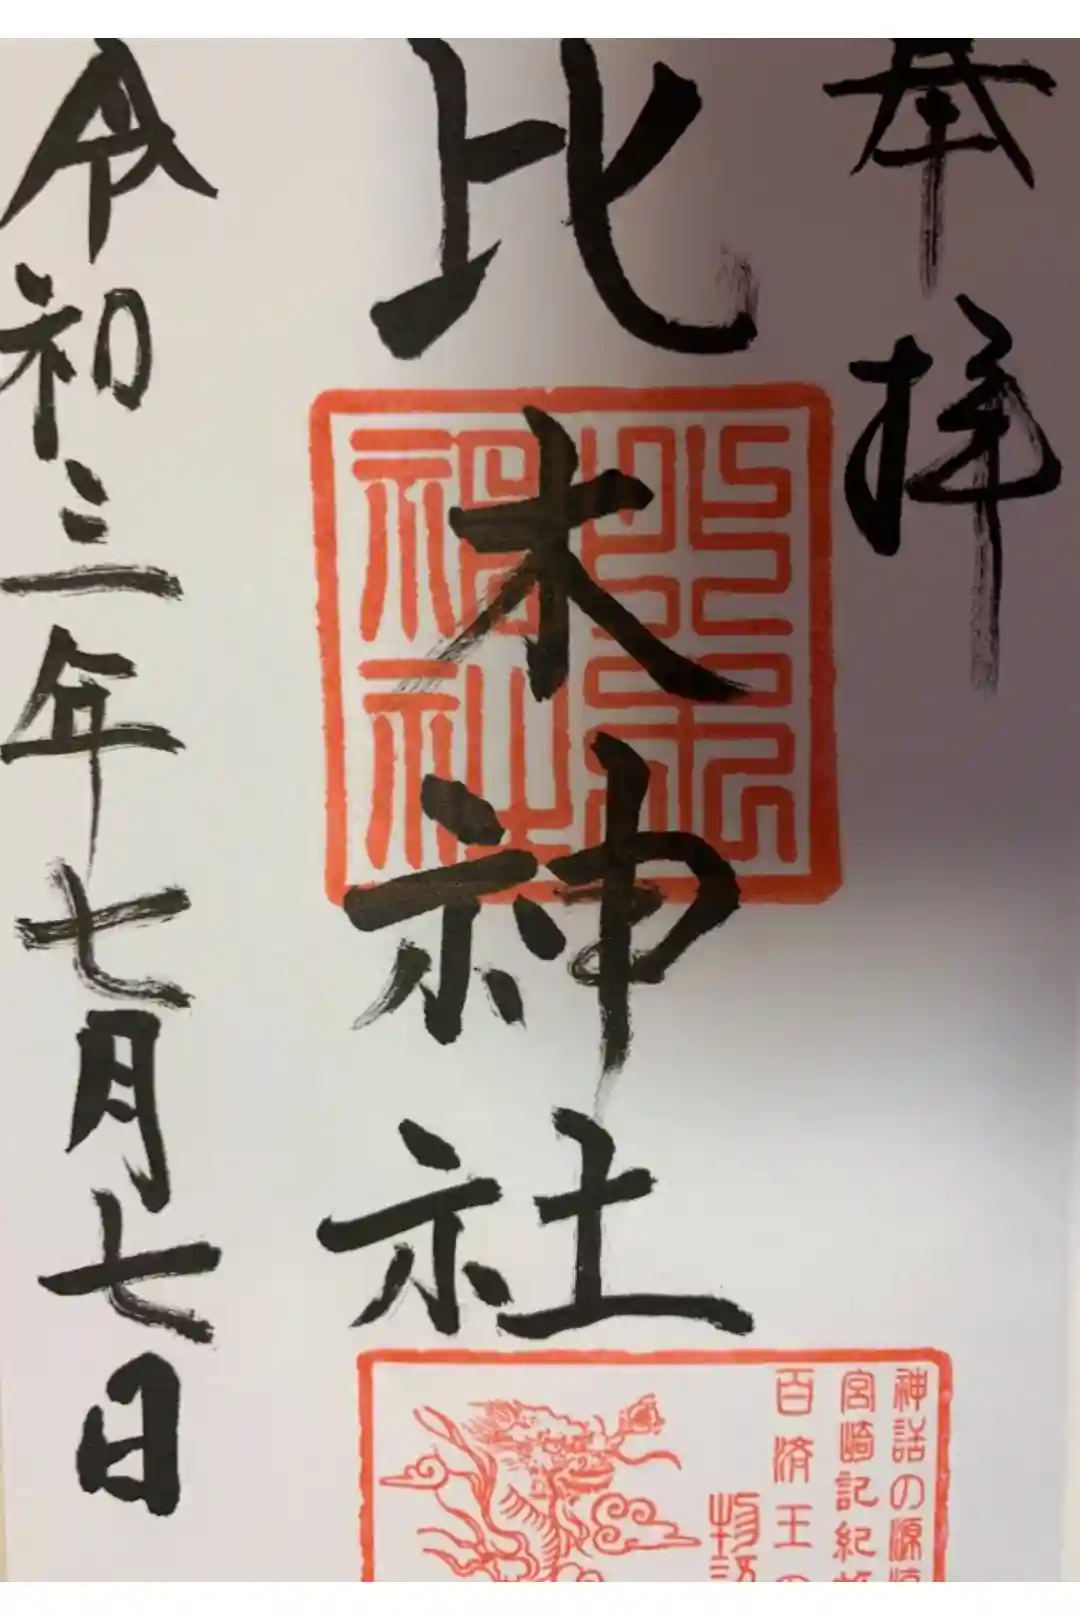 奉拝
比木神社
比木神社
令和三年七月七日
神話の源流
宮崎記紀
百済王
物語